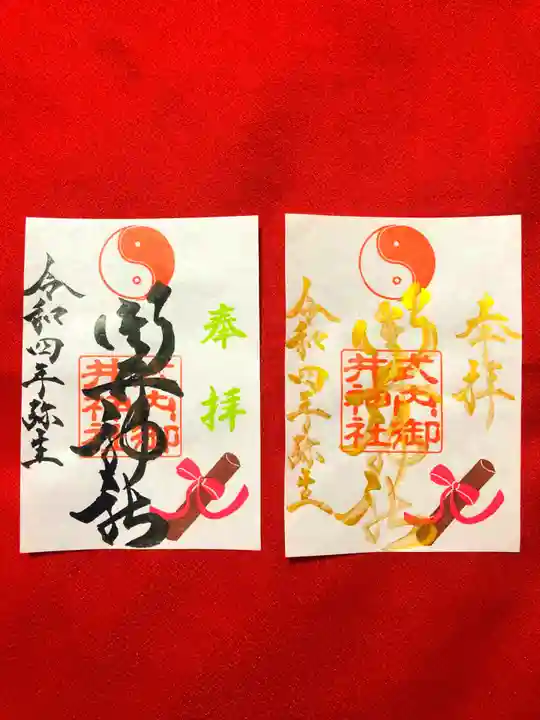 奉拝
式内御井神社
御井神社
令和四年弥生
奉拝
式内御井神社
御井神社
令和四年弥生